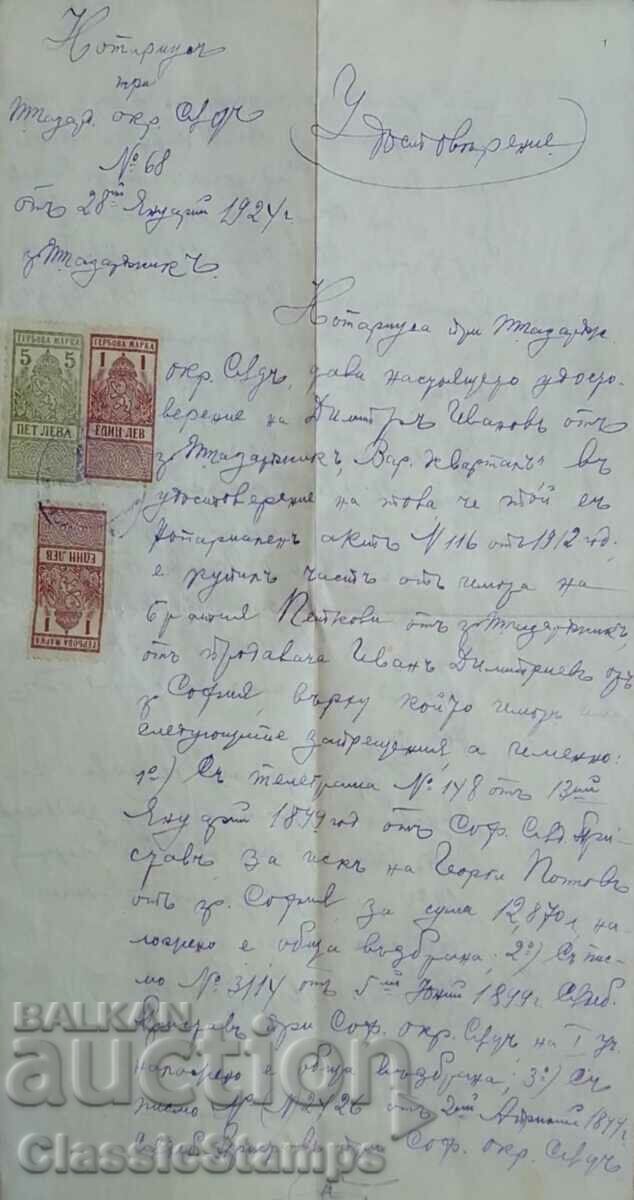 Нотариусъ
при
Пазар. окр. Съдъ
№ 68
отъ 28ий Януарий 1924 г.
гр. Пазарджикъ.
Удостоверение
Нотариуса при Пазардж.
окр. Съдъ, дава настоящето удосто-
верение на Димитръ Ивановъ отъ
гр. Пазарджикъ, Вар. кварталъ въ
удостоверение на това че той съ
Нотариаленъ актъ № 116 отъ 1912 год.
е купилъ часть отъ имота на
братия Петкови отъ гр. Пазарджикъ,
отъ продавача Иванъ Димитриевъ отъ
гр. София, върху който имотъ
следующите запрещения, а именно:
1о) Съ телеграма № 148 отъ 13ий
Януарий 1899 год отъ Соф. Съд. При-
ставъ за искъ на Георги Поповъ
отъ гр. София за сума 12,870 л. на-
ложено е обща възбрана; 2о) Съ пис-
мо № 3114 отъ 5ий Юний 1899 г. Съдеб.
Приставъ при Соф. окр. Съдъ на I уч.
наложено е обща възбрана; 3о) Съ
писмо № 2426 отъ 2ий Априлий 1899 г.
Съдеб. Прист. въ при Соф. окр. Съдъ
ГЕРБОВА МАРКА
5 5
ПЕТ ЛЕВА
ГЕРБОВА МАРКА
1 1
ЕДИН ЛЕВ
ГЕРБОВА МАРКА
1 1
ЕДИН ЛЕВ
BALKAN
auction
ClassicStamps